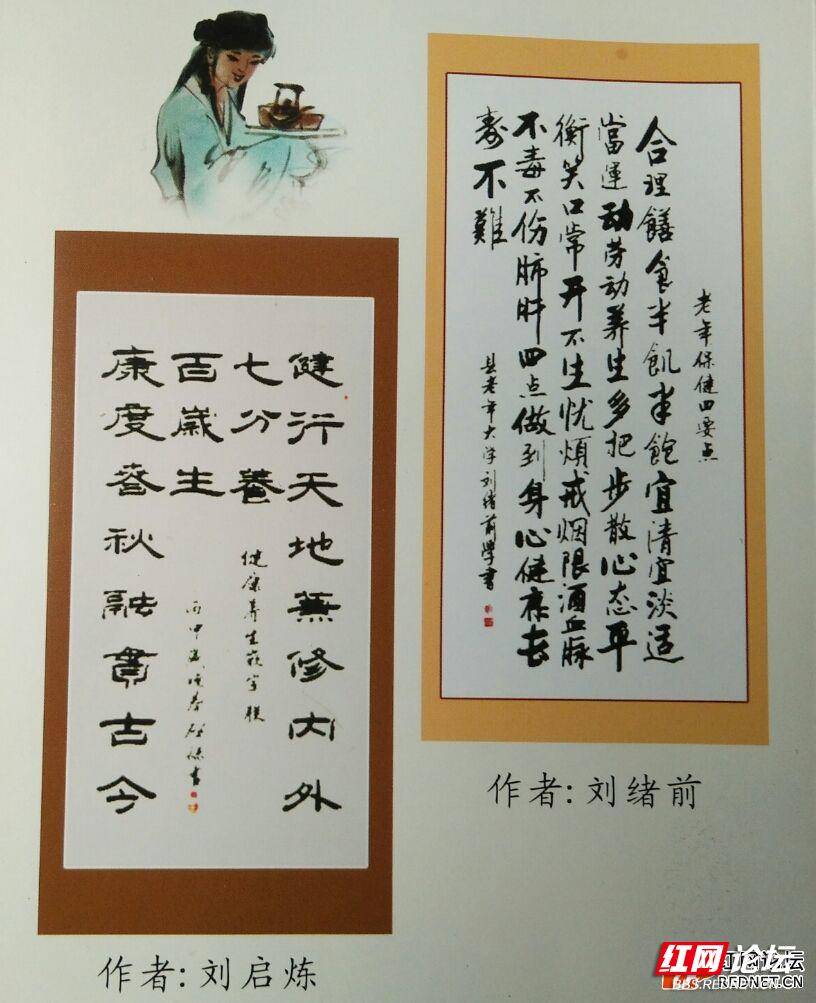 老年保健四要点
合理饍食半飢半飽宜清宜淡适
當運動劳动养生多把步散心态平
衡笑口常开不生忧煩戒烟限酒血脉
不毒不伤肺肝四点做到身心健康长
寿不難
县老年大学刘绪前學書
作者:刘绪前
健行天地兼修内外
七分養
健康养生嵌字联
百歲生
丙申晚春启炼书
康度春秋融貫古今
作者:刘启炼
红网论坛
红网论坛
BBS.REDNET.CN
REDNET.CN